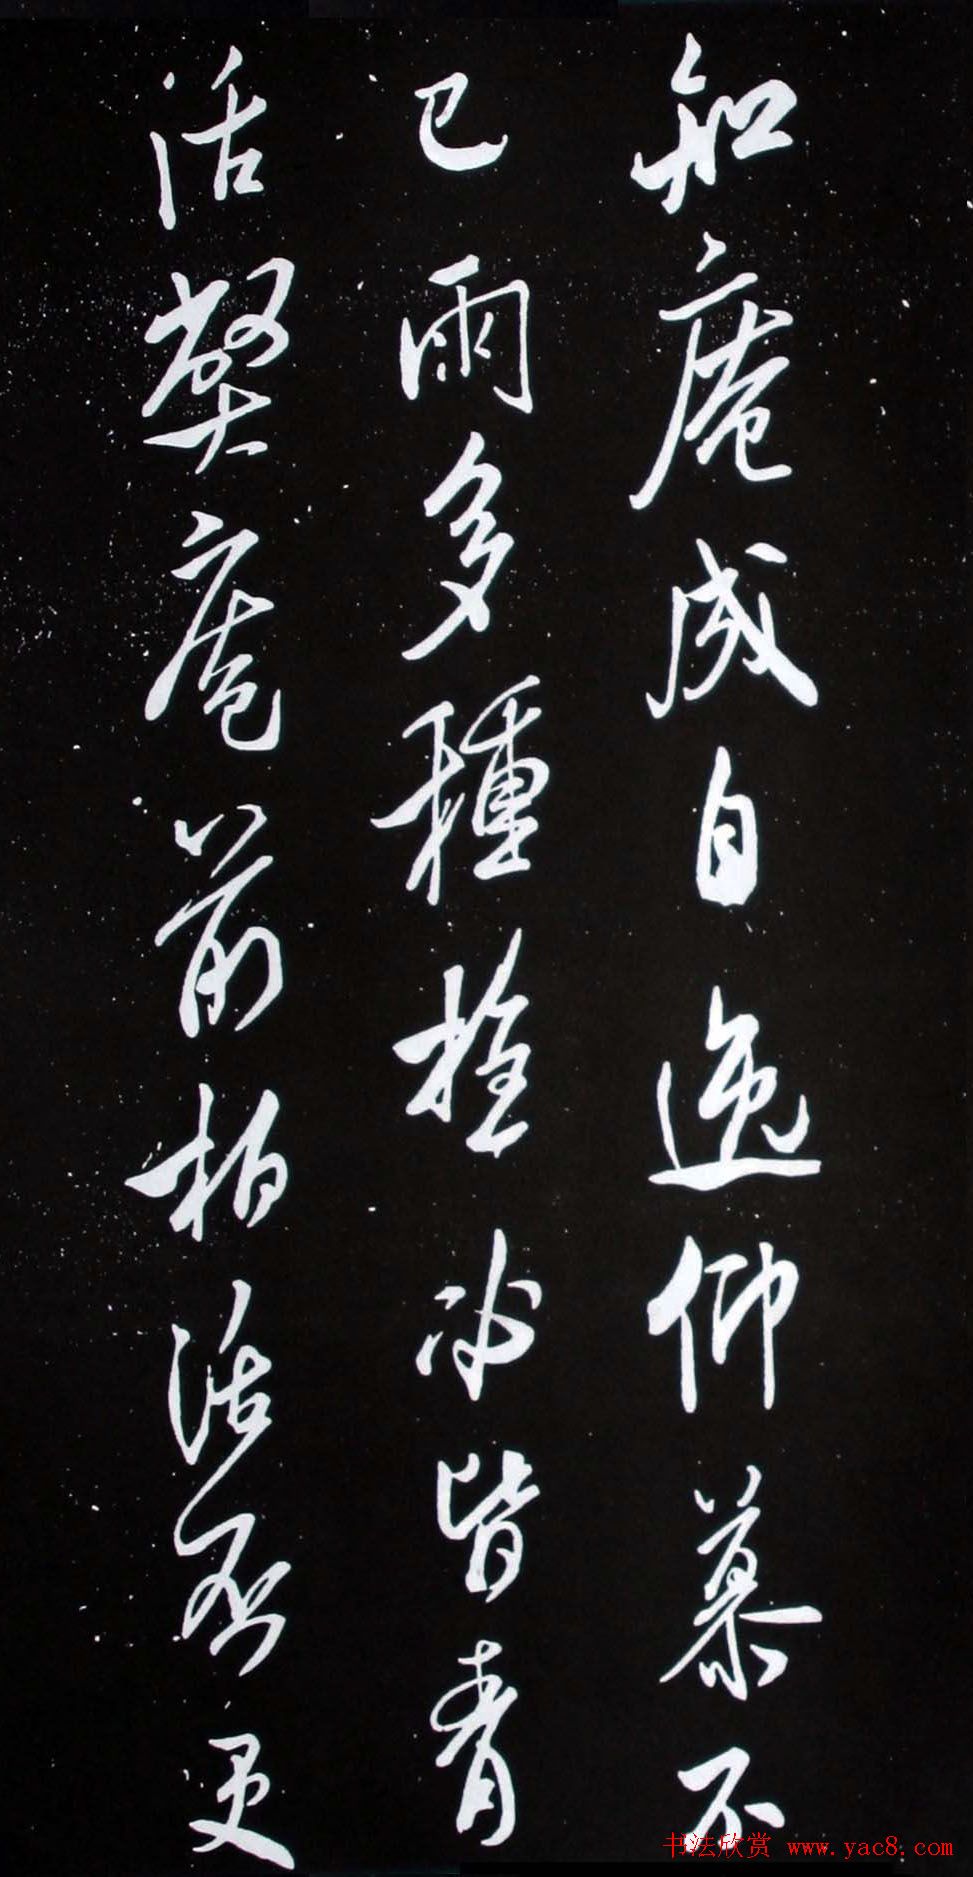 知庵成自逸仰慕不
已雨多種栓必皆青
活弊庵前柏活否更
书法欣赏 www.yac8.com